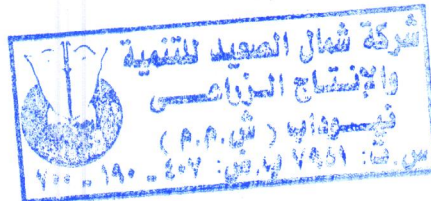 شركة شمال الصعيد للتنمية
والإنتاج الزراعى
نيوداب (ش.م.م)
س.ت: ٧٩٤١ ب.ض: ٤٠٧ - ١٩٠ - ٧٠٠